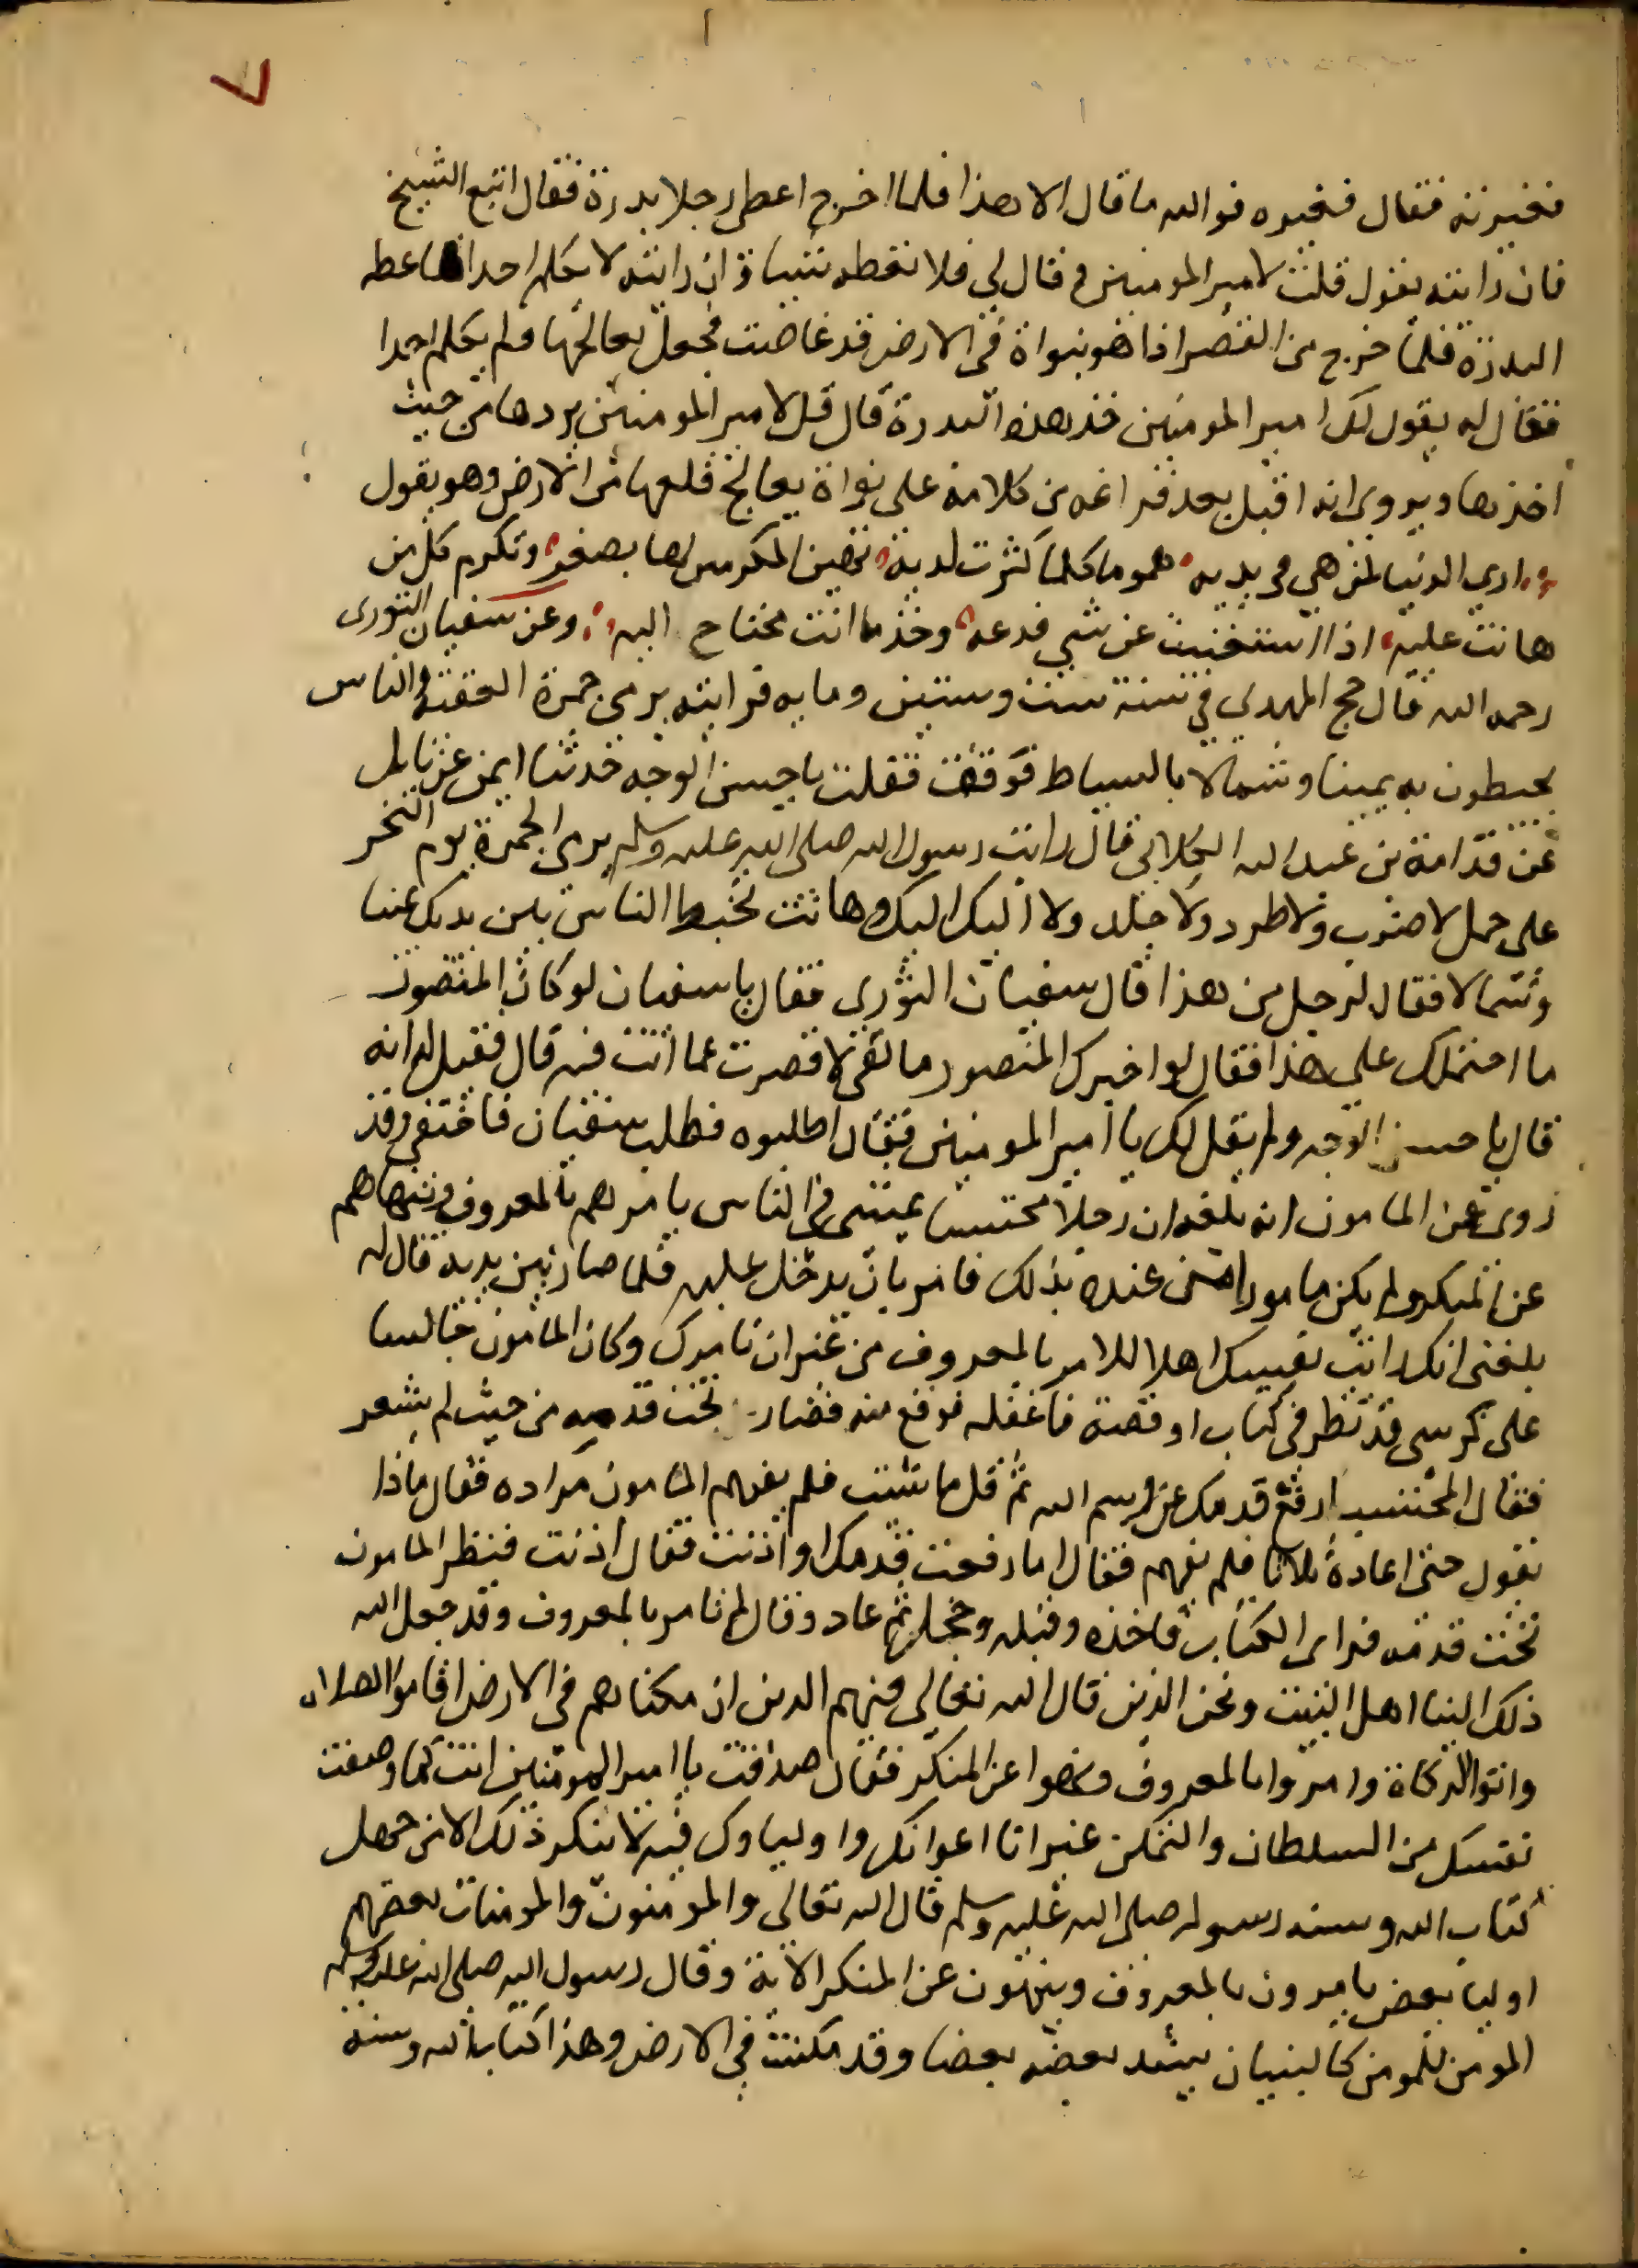 فخبرته فقال فنخبره فوالله ما قال الا هذا فلما اخرج اعطى رجلا بدرة فقال اتبع الشيخ
فان رايته يقول قلت لامير المومنين وقال لي فلا تعطه شيا و ان رايته لا يكلم احدا فاعطه
البدرة فلما خرج من القصر اذا هو بنواة في الارض قد غاضت فجعل يعالجها ولم يكلم احدا
فقال له يقول لك امير المومنين خذ هذه البدرة قال قل لامير المومنين يردها من حيث
اخذها ويروى انه اقبل بعد فراغه من كلامه على نواة يعالج قلعها من الارض وهو يقول
ارى الدنيا لمن هي في يديه هموما كلما كثرت لديه تهين المكرمين لها بصغر وتكرم كل من
هانت عليه اذا استغنيت عن شي فدعه وخذ ما انت محتاج اليه وعن سفيان الثورى
رحمه الله قال حج المهدي في سنة ست وستين ومايه فرايته يرمي جمرة العقبة والناس
يخبطون به يمينا وشمالا بالسياط فوقفت فقلت يا حسن الوجه حدثنا ايمن عن نابل
عن قدامة بن عبد الله الكلابي قال رايت رسول الله صلى الله عليه وسلم يرمى الجمرة يوم النحر
على جمل لا ضرب ولا طرد ولا جلد ولا اليك اليك وها انت تخبط الناس بين يديك يمينا
وشمالا فقال لرجل من هذا قال سفيان الثورى فقال يا سفيان لو كان المنصور
ما احتملك على هذا فقال لو اخبرك المنصور ما لقي لاقصرت عما انت فيه قال فقيل له انه
قال يا حسن الوجه ولم يقل لك يا امير المومنين فقال اطلبوه فطلب سفيان فاختفى وقد
روى عن المامون انه بلغه ان رجلا محتسبا يمشي في الناس يامرهم بالمعروف وينهاهم
عن المنكر ولم يكن مامورا من عنده بذلك فامر بان يدخل عليه فلما صار بين يديه قال له
بلغني انك رايت نفسك اهلا للامر بالمعروف من غير ان نامرك وكان المامون جالسا
على كرسي قد نظر في كتاب او قصة فاغفله فوقع منه فصار تحت قدميه من حيث لم يشعر
فقال المحتسب ارفع قدمك عن اسم الله ثم قل ما شيت فلم يفهم المامون مراده فقال ماذا
تقول حتى اعاده ثلاثا فلم يفهم فقال اما رفعت قدمك او اذنت فقال اذنت فنظر المامون
تحت قدمه فراى الكتاب فاخذه وقبله وخجل ثم عاد وقال لم تامر بالمعروف وقد جعل الله
ذلك الينا اهل البيت ونحن الذين قال الله تعالى فيهم الذين ان مكناهم في الارض اقاموا الصلاة
واتوا الزكاة وامروا بالمعروف ونهوا عن المنكر فقال صدقت يا امير المومنين انت كما وصفت
نفسك من السلطان والتمكن غير انا اعوانك واولياوك فيه لا ينكر ذلك الا من جهل
كتاب الله وسنة رسوله صلى الله عليه وسلم قال الله تعالى والمومنون والمومنات بعضهم
اوليا بعض يامرون بالمعروف وينهون عن المنكر الاية وقال رسول الله صلى الله عليه وسلم
المومن للمومن كالبنيان يشد بعضه بعضا وقد مكنت في الارض وهذا كتاب الله وسنة